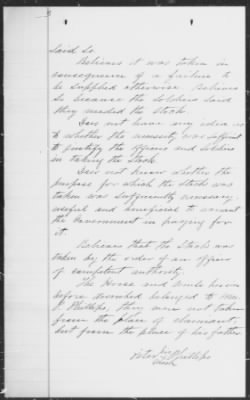 said so.
Believes it was taken in
consequence of a failure to
be supplied otherwise. Believes
so because the soldiers said
they needed the stock.
Does not have any idea as
to whether the necessity was sufficient
to justify the officers and soldiers
in taking the stock.
Does not know whether the
purpose for which the stock was
taken was sufficiently necessary,
useful and beneficial to warrant
the Government in paying for
it.
Believes that the stock was
taken by the order of an officer
of competent authority.
The Horse and mule herein
before described belonged to
J. Phillips, they were not taken
from the place of claimant,
but from the place of his father
Phillips